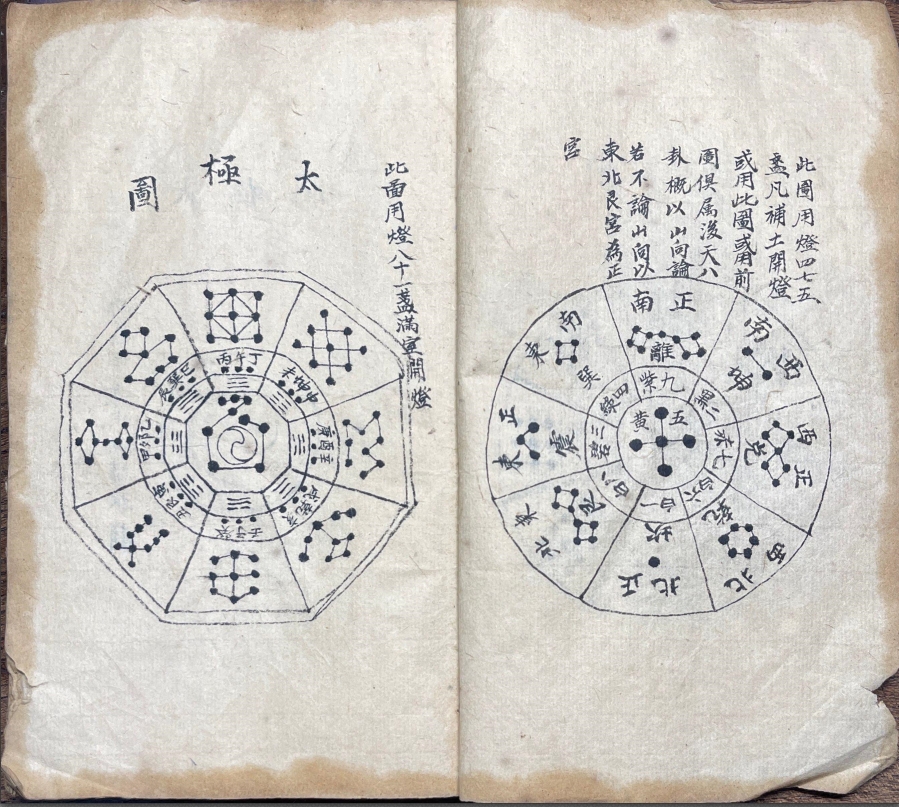 此圖用燈四七五
盞凡補土開燈
或用此圖或用前
圖俱属浚天八
卦概以山向論
若不論山向以
東北艮宮為正
宮
正南
離
九紫
南西
坤
二黑
西正
兌
七赤
西北
乾
六白
正北
坎
一白
東北
艮
八白
正東
震
三碧
東南
巽
四綠
五黃
此面用燈八十一盞滿室開燈
太極圖
丙午丁
未坤申
庚酉辛
戌乾亥
壬子癸
丑艮寅
甲卯乙
辰巽巳